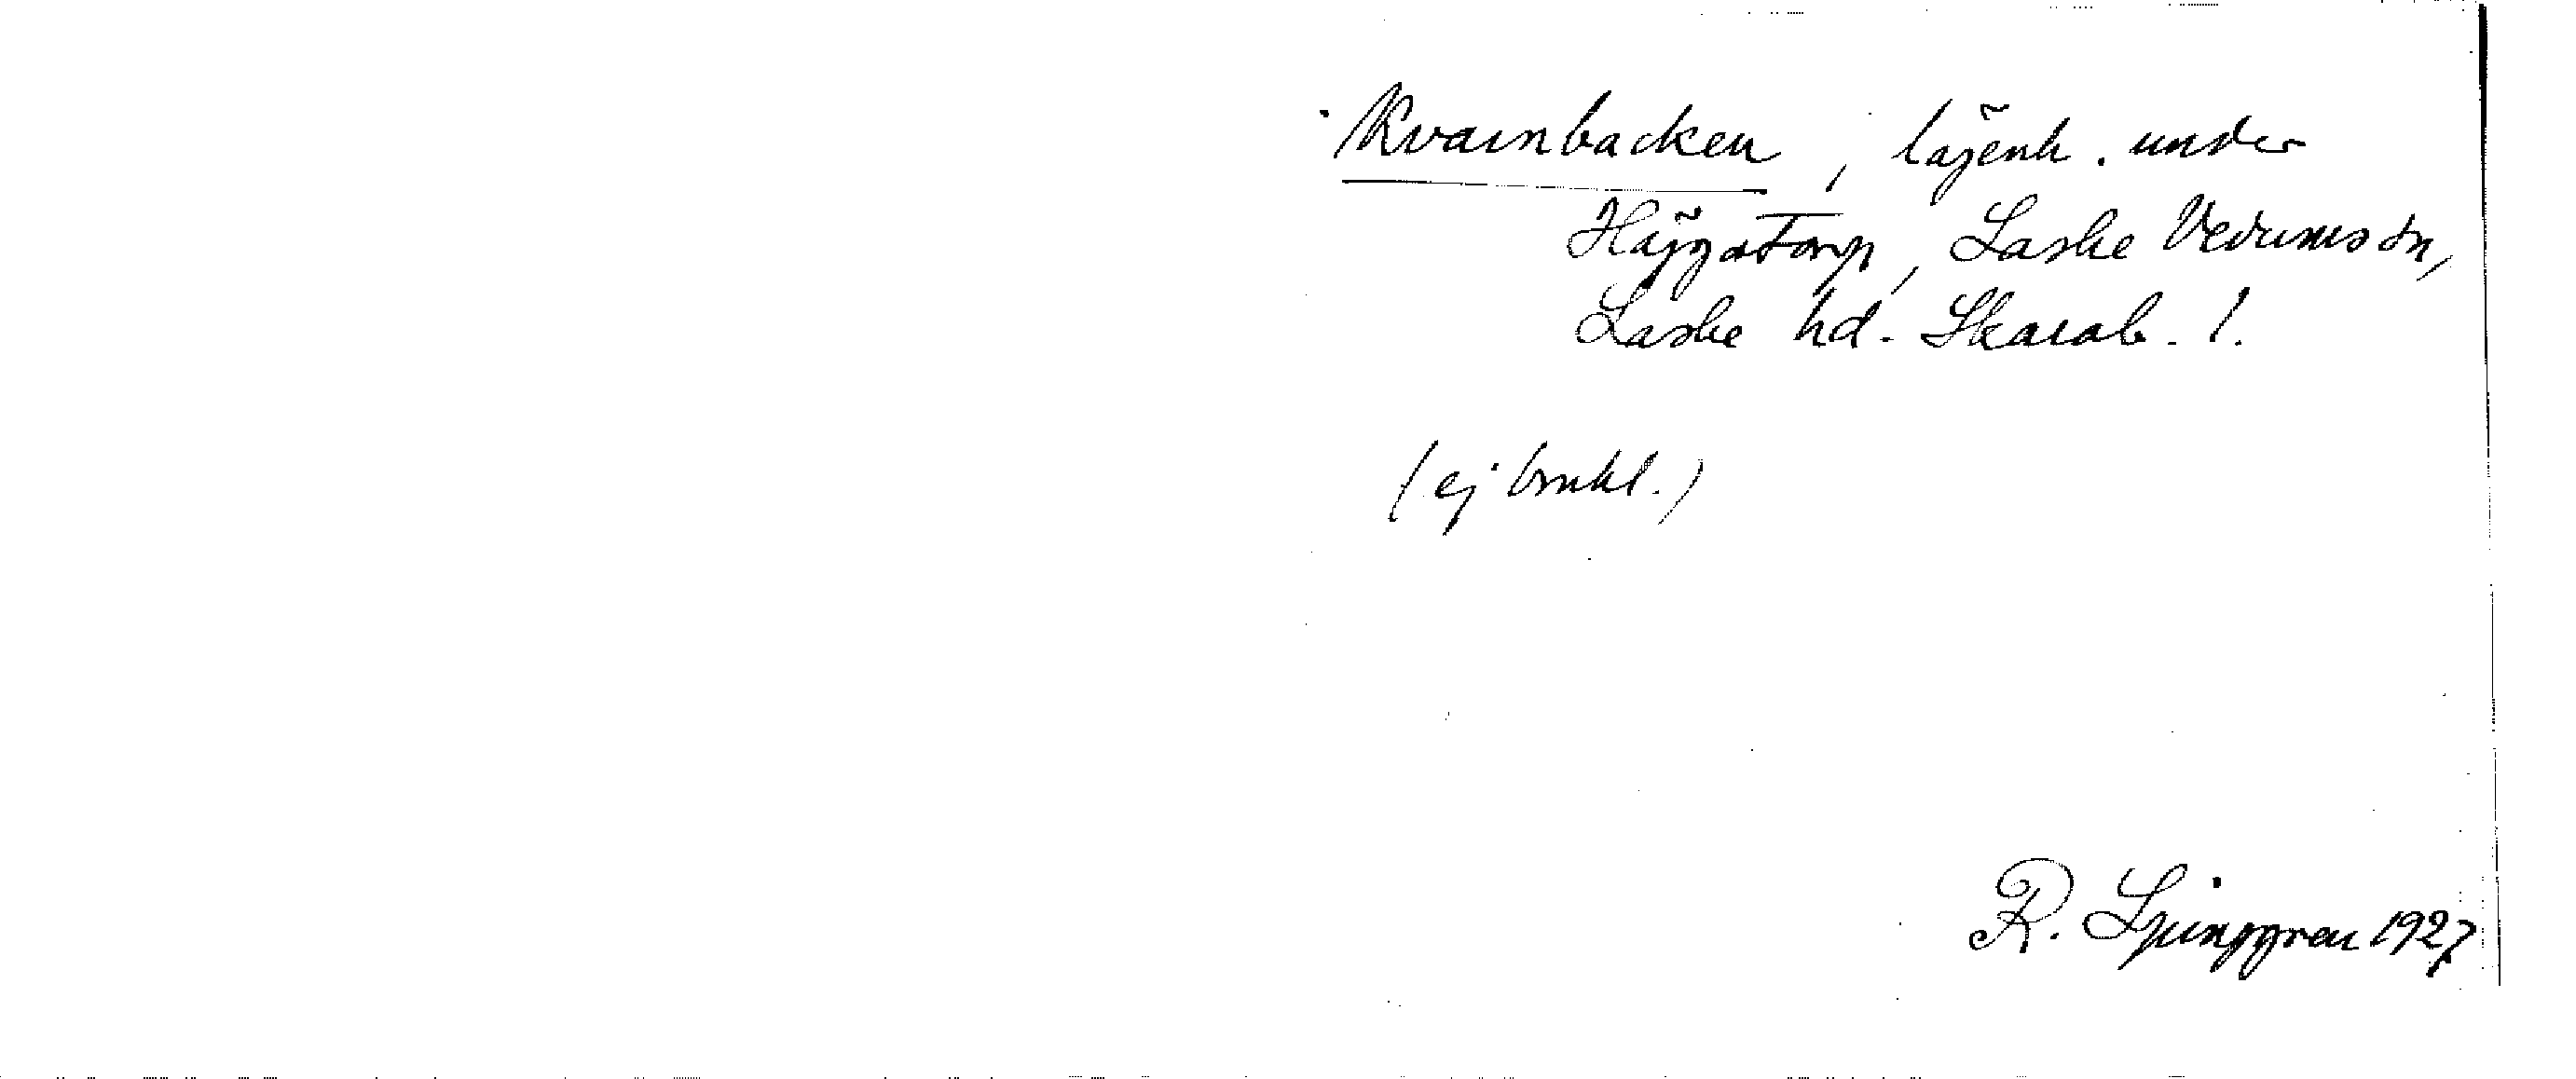 Kvarnbacken, lägenh. under
Häggatorp, Laske Vedums sn,
Laske hd. Skarab. l.
(ej brukl.)
R. Ljunggren 1927